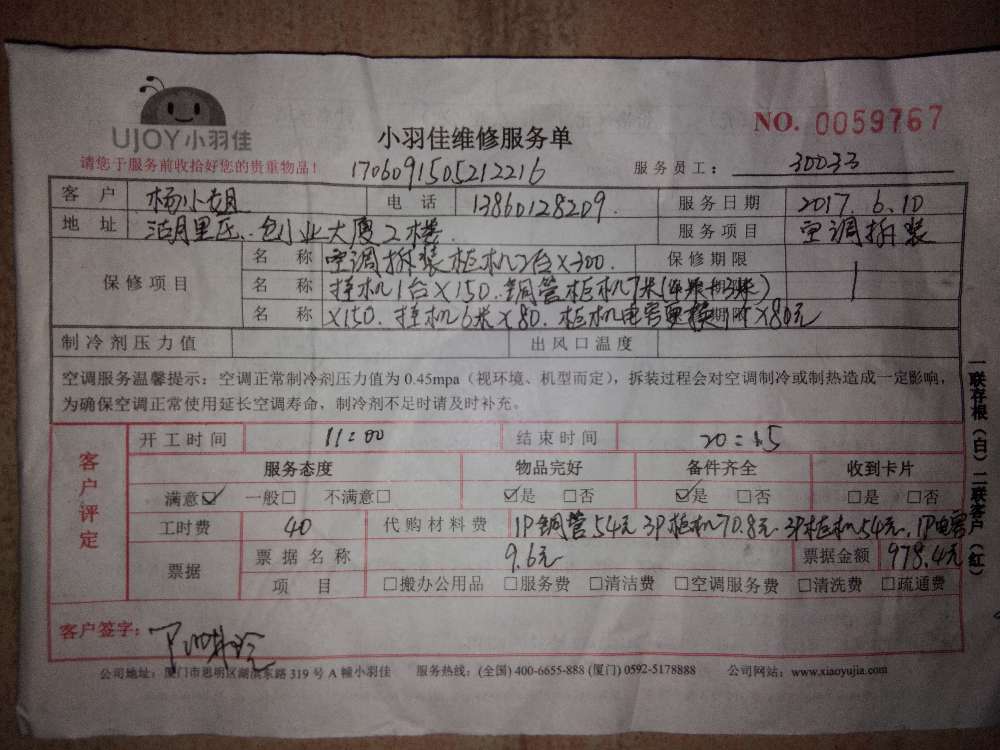 UJOY小羽佳
小羽佳维修服务单
NO. 0059767
请您于服务前收拾好您的贵重物品！
1706091505212216
服务员工： 30033
客户 杨小姐 电话 13860128209. 服务日期 2017.6.10
地址 湖里区、创业大厦2楼. 服务项目 空调拆装
保修项目
名称 空调拆装柜机2台×300. 保修期限
名称 挂机1台×150.铜管柜机7米(4米+3米)
名称 ×150.挂机6米×80.柜机电容更换1个×80元
制冷剂压力值 出风口温度
空调服务温馨提示：空调正常制冷剂压力值为0.45mpa（视环境、机型而定），拆装过程会对空调制冷或制热造成一定影响，
为确保空调正常使用延长空调寿命，制冷剂不足时请及时补充。
客户评定
开工时间 11:00 结束时间 20:15
服务态度 物品完好 备件齐全 收到卡片
满意☑ 一般□ 不满意□ ☑是 □否 ☑是 □否 □是 □否
工时费 40 代购材料费 1P铜管54元 3P柜机70.8元 3P柜机54元.1P电容
票据 票据名称 9.6元 票据金额 978.4元
项目 □搬办公用品 □服务费 □清洁费 □空调服务费 □清洗费 □疏通费
客户签字：
公司地址：厦门市思明区湖滨东路319号A幢小羽佳 服务热线：(全国) 400-6655-888 (厦门) 0592-5178888 公司网站：www.xiaoyujia.com
一联存根（白）二联客户（红）